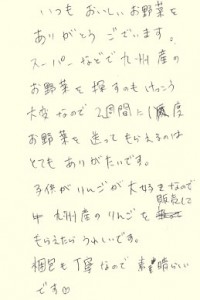 いつも おいしいお野菜を
ありがとう ございます。
スーパーなどで九州産の
お野菜を 探すのもけっこう
大変なので 2週間に1度
お野菜を 送ってもらえるのは
とても ありがたいです。
子供がりんごが大好きなので
販売に
中 九州産のりんごを
もらえたら うれしいです。
梱包も丁寧なので 素晴らしい
です♡